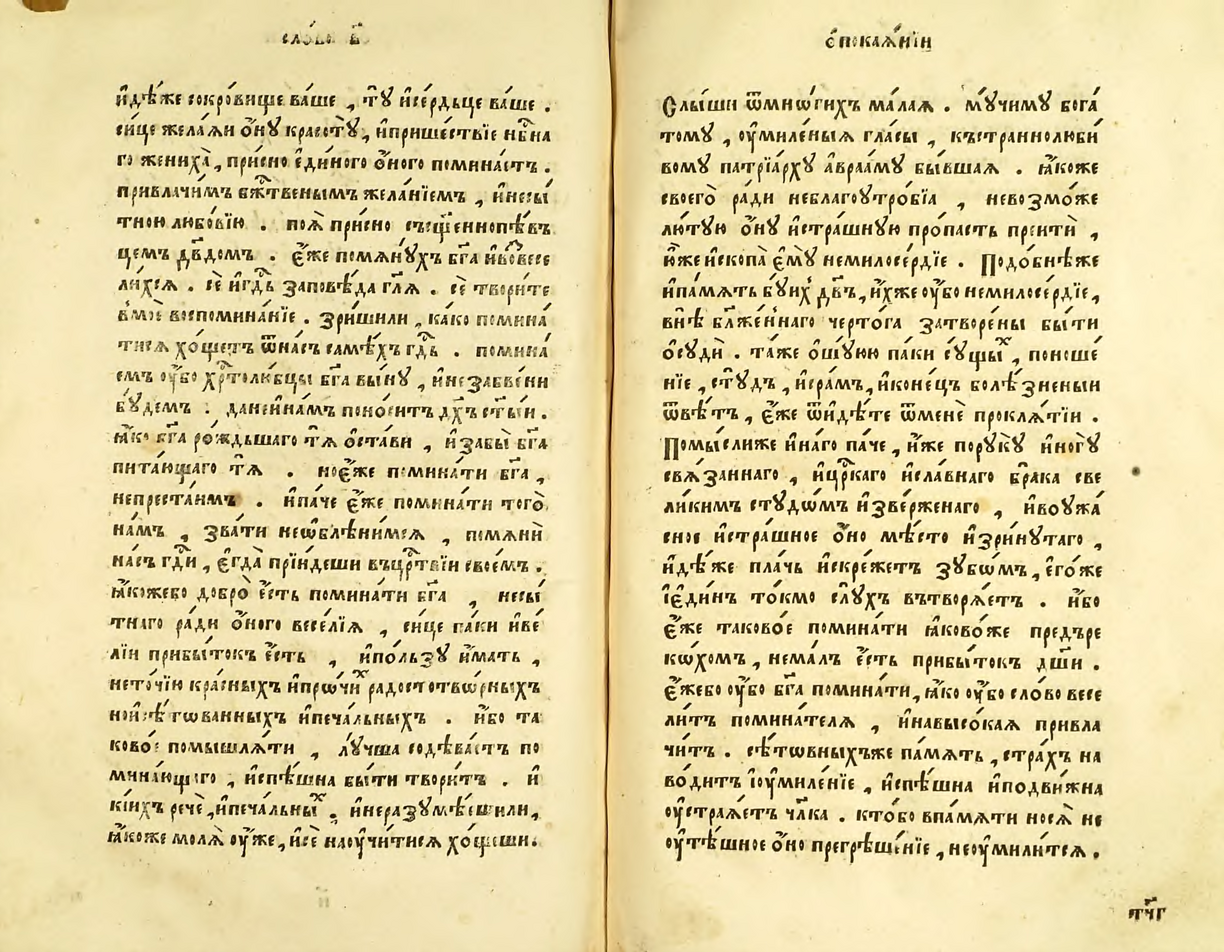 сло́во в҃
и҆дѣ́же сокро́вище ва́ше , тꙋ̀ и҆се́рдьце ва́ше .
си́це жела́ѧи о҆́нꙋ красотꙋ̀ , и҆прише́ствїе нб҇на
го женихà , при́сно є҆ди́ного о҆́ного помина́етъ .
привлачи́мъ бж҇твенымъ жела́нїемъ , и҆несы́
тною любо́вїю . поѧ̀ при́сно съсщ҃еннопѣ́въ
цемъ дв҃домъ . є҆́же помѧнꙋ́хъ бг҃а и҆возвесе
ли́хсѧ . сѐ и҆гд҇ь заповѣ́да гл҃ѧ . сѐ твори́те
в̾моѐ воспомина́нїе . зри́шили , ка́ко помина́
тисѧ хо́щетъ ѿна́съ самѣ́хъ гд҇ь . помина́
емъ ᲂу҆̀бо хр҇толю́бцы бг҃а вы́нꙋ , и҆незабве́ни
бꙋ́демъ . данеи҆на́мъ поно́ситъ дх҃ъ ст҃ы́и .
ꙗ҆́ко бг҃а ро́ждьшаго тѧ̀ о҆ста́ви , и҆забы̀ бг҃а
пита́ющаго тѧ̀ . ноє҆́же помина́ти бг҃а ,
непреста́имъ . и҆па́че є҆́же помина́ти того̀
на́мъ , зва́ти неѡ҆блѣни́мсѧ , помѧнѝ
на́съ гд҇и , є҆гда̀ прїи́деши въцр҇твїи свое́мъ .
ꙗ҆́коже́бо добро̀ є҆́сть помина́ти бг҃а , несы́
тнаго ра́ди о҆́ного весе́лїѧ , си́це па́ки и҆ве́
лїи прибы́токъ є҆́сть , и҆по́льзꙋ и҆́мать ,
нето́чїю кра́сныхъ и҆прѡ́чиⷯ радостотво́рныхъ
нои҆сѣ́тѡванныхъ и҆печа́льныхъ . и҆́бо та
ково́е помышлѧ́ти , лꙋ́чша содѣ́ваетъ по
мина́ющаго , и҆спѣ́шна бы́ти твори́тъ . и҆
кі́ихъ речѐ , и҆печа́льныⷯ . и҆неразꙋмѣ́ешили ,
ꙗ҆́коже молѧ̀ ᲂу҆́же , и҆сѐ наᲂу҆чи́тисѧ хо́щеши .
ѡ҆покаѧ́нїи
Слы́ши ѿмно́гихъ ма́лаѧ . мꙋ́чимꙋ бога́
томꙋ , ᲂу҆миле́ныѧ гла́сы , къстраннолюби́
вомꙋ патрїа́рхꙋ а҆враа́мꙋ бы́вшаѧ . ꙗ҆́коже
своегѡ̀ ра́ди неблагоᲂутро́бїа , невозмо́же
лю́тꙋю о҆́нꙋ и҆стра́шнꙋю про́пасть преитѝ ,
и҆́же и҆скопа̀ є҆мꙋ̀ немилосе́рдїе . Подо́бнѣже
и҆па́мѧть бꙋ́ихъ дв҃ъ , и҆́хже ᲂу҆́бо немилосе́рдїе ,
внѣ̀ бл҃же́ннаго черто́га затворе́ны бы́ти
ѡ҆сꙋдѝ . та́же о҆шꙋ́юю па́ки сꙋ́щыⷯ , поноше́
нїе , стꙋ́дъ , и҆сра́мъ , и҆коне́цъ болѣ́зненыи
ѿвѣ́тъ , є҆́же ѿи҆дѣ́те ѿменѐ про́клѧтїи .
Помы́слиже и҆на́го па́че , и҆́же порꙋ́кꙋ и҆ногꙋ̀
свѧ́заннаго , и҆цр҇каго и҆сла́внаго бра́ка све
ли́кимъ стꙋдо́мъ и҆зве́рженаго , и҆воᲂу҆жа́
сное и҆стра́шное о҆́но мѣ́сто и҆зри́нꙋтаго ,
и҆дѣ́же пла́чь и҆скре́жетъ зꙋбѡ́мъ , є҆го́же
їє҆ди́нъ то́кмо слꙋ́хъ вътворѧ́етъ . и҆́бо
є҆́же таково́е помина́ти ꙗ҆́ково́же предъре
ко́хомъ , нема́лъ є҆́сть прибы́токъ дш҃и .
є҆́жебо ᲂу҆́бо бг҃а помина́ти , ꙗ҆́ко ᲂу҆́бо сло́во весе
ли́тъ помина́телѧ , и҆навысо́каѧ привла
чи́тъ . сѣ́товныхъже па́мѧть , стра́хъ на
во́дитъ їᲂу҆миле́нїе , и҆спѣ́шна и҆подви́жна
ᲂу҆страѧ́етъ чл҃ка . кто́бо впа́мѧти носѧ̀ не
ᲂу҆тѣ́шное о҆́но прегрѣше́нїе , неᲂу҆мили́тсѧ .
тч҃г